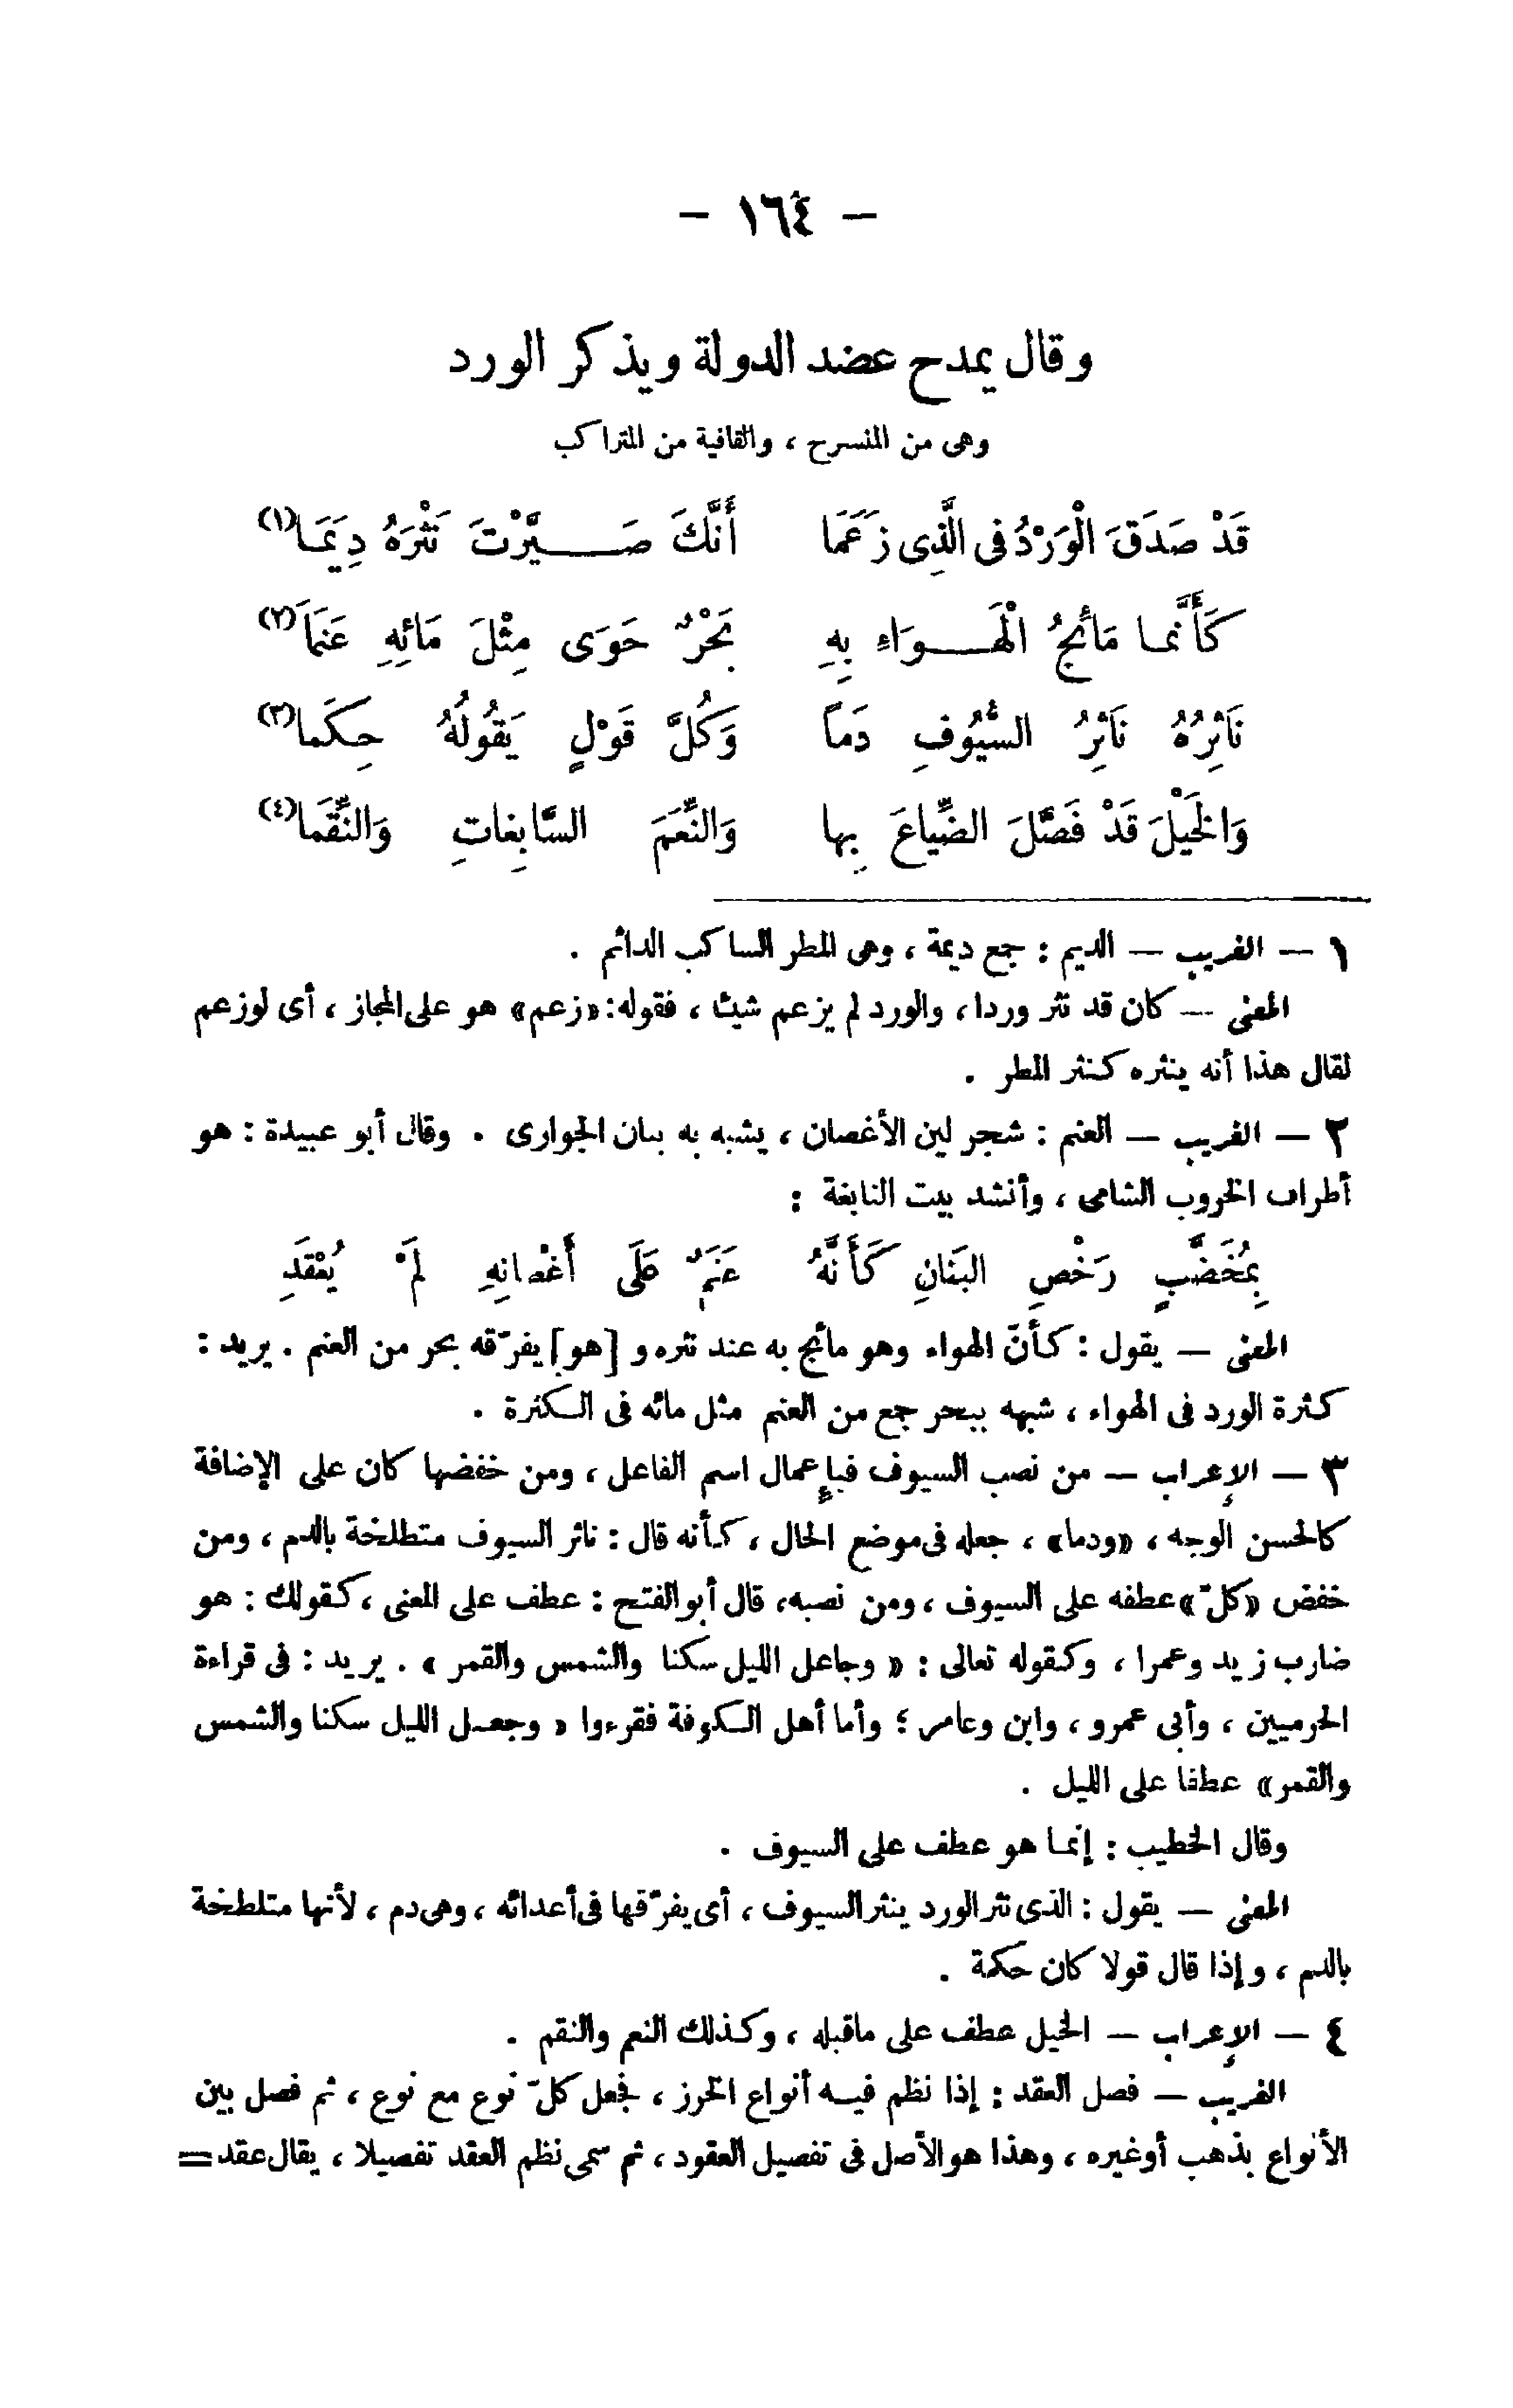 - ١٦٤ -
وقال يمدح عضد الدولة ويذكر الورد
وهى من المنسرح ، والقافية من المتراكب
قَدْ صَدَقَ الْوَرْدُ فى الَّذِى زَعَمَا أَنَّكَ صَيَّرْتَ نَثْرَهُ دِيَمَا (١)
كَأَنَّمَا مَائِجُ الْهَوَاءِ بِهِ بَحْرٌ حَوَى مِثْلَ مَائِهِ عَنَمَا (٢)
نَاثِرُهُ نَاثِرُ السُّيُوفِ دَماً وَكُلَّ قَوْلٍ يَقُولُهُ حِكَما (٣)
وَالخَيْلَ قَدْ فَصَّلَ الضِّياعَ بِها وَالنِّعَمَ السَّابِغاتِ وَالنِّقَما (٤)
١ — الغريب — الديم : جمع ديمة ، وهى المطر الساكب الدائم .
المعنى — كان قد نثر وردا ، والورد لم يزعم شيئا ، فقوله : «زعم» هو على المجاز ، أى لو زعم
لقال هذا أنه ينثره كنثر المطر .
٢ — الغريب — العنم : شجر لين الأغصان ، يشبه به بنان الجوارى . وقال أبو عبيدة : هو
أطراف الخروب الشامى ، وأنشد بيت النابغة :
بِمُخَضَّبٍ رَخْصِ البَنَانِ كَأَنَّهُ عَنَمٌ عَلَى أَغْصَانِهِ لَمْ يُعْقَدِ
المعنى — يقول : كأنّ الهواء وهو مائج به عند نثره و [هو] يفرّقه بحر من العنم . يريد :
كثرة الورد فى الهواء ، شبهه ببحر جمع من العنم مثل مائه فى الكثرة .
٣ — الإعراب — من نصب السيوف فبإعمال اسم الفاعل ، ومن خفضها كان على الإضافة
كالحسن الوجه ، «ودما» ، جعله فى موضع الحال ، كأنه قال : ناثر السيوف متطلخة بالدم ، ومن
خفض «كلّ» عطفه على السيوف ، ومن نصبه ، قال أبو الفتح : عطف على المعنى ، كقولك : هو
ضارب زيد وعمرا ، وكقوله تعالى : « وجاعل الليل سكنا والشمس والقمر » . يريد : فى قراءة
الحرميين ، وأبى عمرو ، وابن وعامر ؛ وأما أهل الكوفة فقرءوا « وجعل الليل سكنا والشمس
والقمر» عطفا على الليل .
وقال الخطيب : إنما هو عطف على السيوف .
المعنى — يقول : الذى نثر الورد ينثر السيوف ، أى يفرّقها فى أعدائه ، وهى دم ، لأنها متلطخة
بالدم ، وإذا قال قولا كان حكمة .
٤ — الإعراب — الخيل عطف على ماقبله ، وكذلك النعم والنقم .
الغريب — فصل العقد : إذا نظم فيه أنواع الخرز ، فجعل كلّ نوع مع نوع ، ثم فصل بين
الأنواع بذهب أوغيره ، وهذا هو الأصل فى تفصيل العقود ، ثم سمى نظم العقد تفصيلا ، يقال عقد =